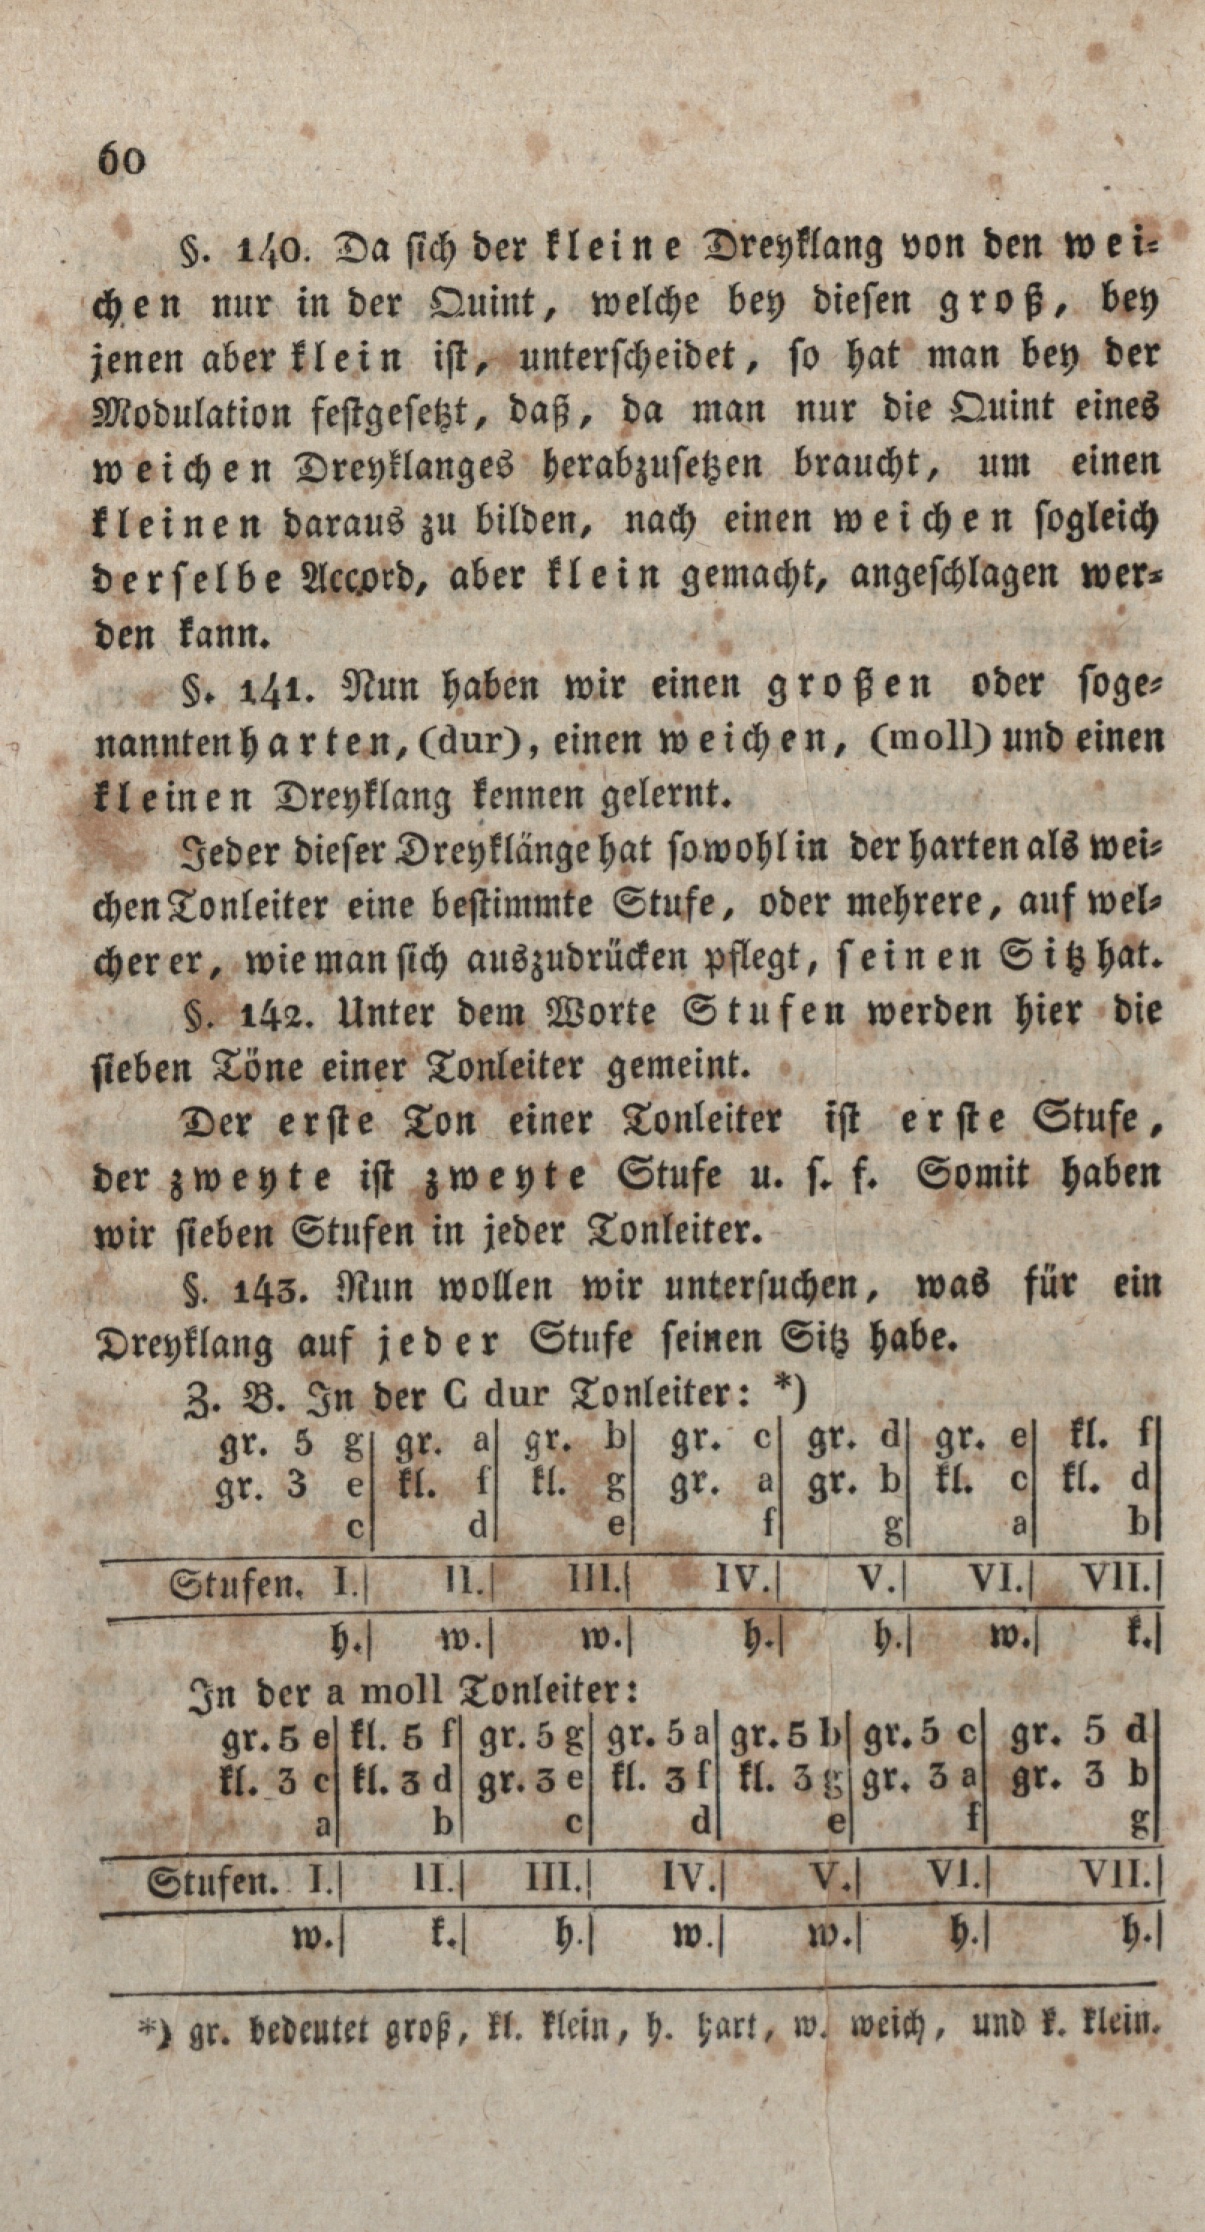 60
§. 140. Da sich der kleine Dreyklang von den wei-
chen nur in der Quint, welche bey diesen groß, bey
jenen aber klein ist, unterscheidet, so hat man bey der
Modulation festgesetzt, daß, da man nur die Quint eines
weichen Dreyklanges herabzusetzen braucht, um einen
kleinen daraus zu bilden, nach einen weichen sogleich
derselbe Accord, aber klein gemacht, angeschlagen wer-
den kann.
§. 141. Nun haben wir einen großen oder soge-
nannten harten, (dur), einen weichen, (moll) und einen
kleinen Dreyklang kennen gelernt.
Jeder dieser Dreyklänge hat sowohl in der harten als wei-
chen Tonleiter eine bestimmte Stufe, oder mehrere, auf wel-
cher er, wie man sich auszudrücken pflegt, seinen Sitz hat.
§. 142. Unter dem Worte Stufen werden hier die
sieben Töne einer Tonleiter gemeint.
Der erste Ton einer Tonleiter ist erste Stufe,
der zweyte ist zweyte Stufe u. s. f. Somit haben
wir sieben Stufen in jeder Tonleiter.
§. 143. Nun wollen wir untersuchen, was für ein
Dreyklang auf jeder Stufe seinen Sitz habe.
Z. B. In der C dur Tonleiter: *)
gr. 5 g| gr. a| gr. b| gr. c| gr. d| gr. e| kl. f|
gr. 3 e| kl. f| kl. g| gr. a| gr. b| kl. c| kl. d|
c| d| e| f| g| a| b|
Stufen. I.| II.| III.| IV.| V.| VI.| VII.|
h.| w.| w.| h.| h.| w.| k.|
In der a moll Tonleiter:
gr. 5 e| kl. 5 f| gr. 5 g| gr. 5 a| gr. 5 b| gr. 5 c| gr. 5 d|
kl. 3 c| kl. 3 d| gr. 3 e| kl. 3 f| kl. 3 g| gr. 3 a| gr. 3 b|
a| b| c| d| e| f| g|
Stufen. I.| II.| III.| IV.| V.| VI.| VII.|
w.| k.| h.| w.| w.| h.| h.|
*) gr. bedeutet groß, kl. klein, h. hart, w. weich, und k. klein.